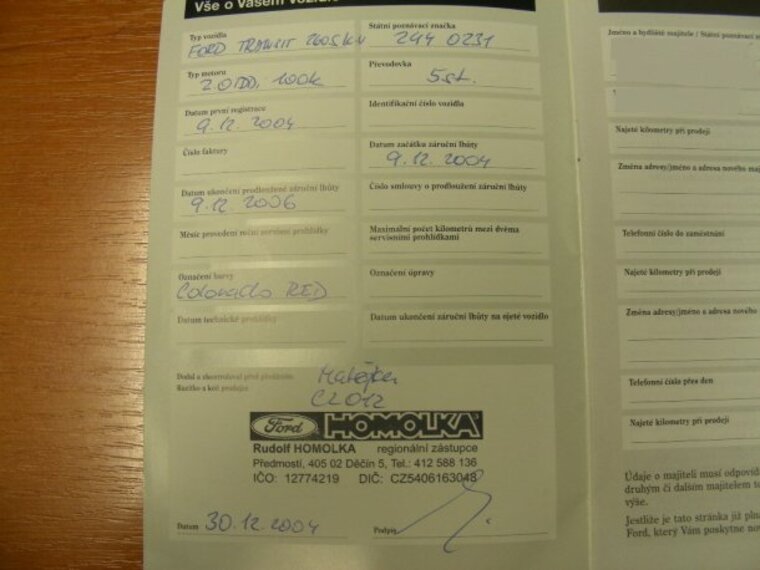 Vše o Vašem vozidle
Typ vozidla
FORD TRANSIT 260S KV
Státní poznávací značka
244 0231
Typ motoru
2.0 TDDi, 100k
Převodovka
5st.
Datum první registrace
9.12. 2004
Identifikační číslo vozidla
Číslo faktury
Datum začátku záruční lhůty
9.12. 2004
Datum ukončení prodloužené záruční lhůty
9.12. 2006
Číslo smlouvy o prodloužení záruční lhůty
Měsíc provedení roční servisní prohlídky
Maximální počet kilometrů mezi dvěma
servisními prohlídkami
Označení barvy
Colorado RED
Označení úpravy
Datum technické prohlídky
Datum ukončení záruční lhůty na ojeté vozidlo
Dodal a zkontroloval před předáním
Razítko a kód prodejce
Matějka
CZ012
Ford HOMOLKA
Rudolf HOMOLKA regionální zástupce
Předmostí, 405 02 Děčín 5, Tel.: 412 588 136
IČO: 12774219 DIČ: CZ5406163048
Datum 30.12.2004
Podpis
Jméno a bydliště majitele / Státní poznávací
Najeté kilometry při prodeji
Změna adresy/jméno a adresa nového
Telefonní číslo do zaměstnání
Najeté kilometry při prodeji
Změna adresy/jméno a adresa nového
Telefonní číslo přes den
Najeté kilometry při prodeji
Údaje o majiteli musí
druhým či dalším majitelem
výše.
Jestliže je tato stránka již
Ford, který Vám poskytne